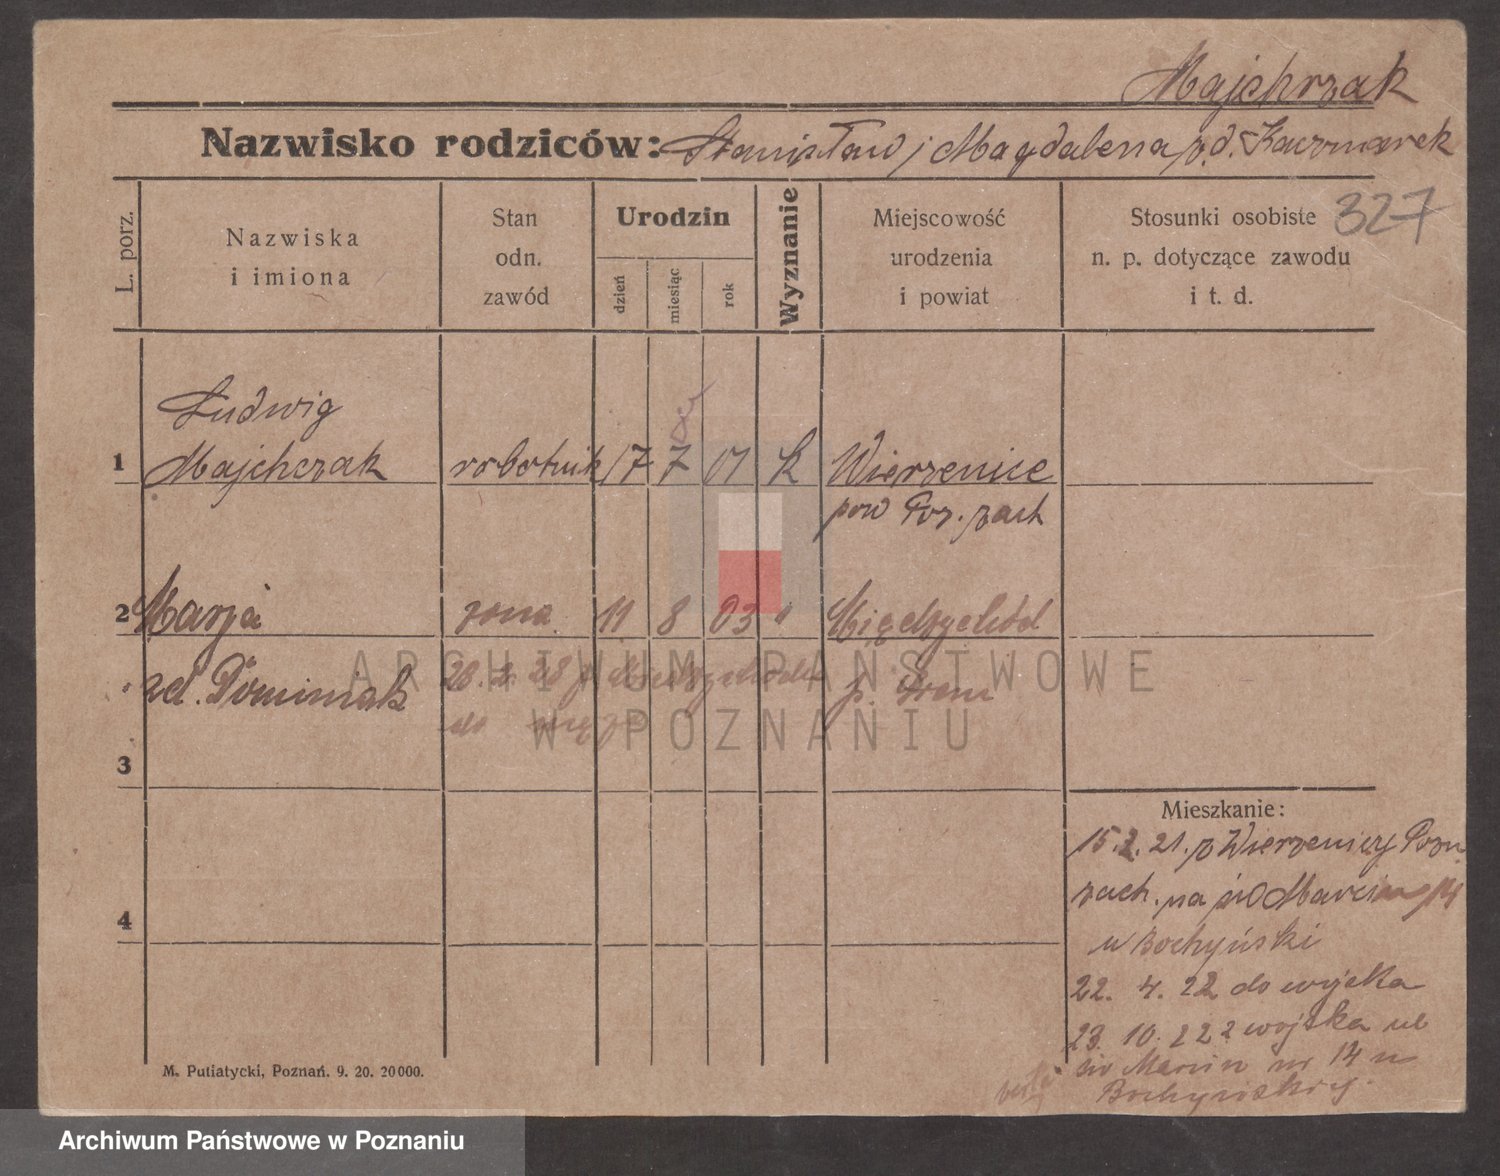 Majchrzak
Nazwisko rodziców: Stanisław i Magdalena z.d. Kaczmarek
327
L. porz.
Nazwiska
i imiona
Stan
odn.
zawód
Urodzin
dzień
miesiąc
rok
Wyznanie
Miejscowość
urodzenia
i powiat
Stosunki osobiste
n. p. dotyczące zawodu
i t. d.
Ludwig
1 Majchrzak robotnik 17 7 01 k Wierzenice
pow Poz. zach
2 Marja żona 11 8 03 " Międzychód
zd. Dominiak 28. 2. 28 z Międzychodu
do męża
3
4
Mieszkanie:
15. 2. 21. z Wierzenicy Pozn
zach. na św Marcin 14
u Bochyński
22. 4. 22 do wojska
23. 10. 22 z wojska ul
św Marcin nr 14 u
Bochyńskiej.
M. Putiatycki, Poznań. 9. 20. 20000.
ARCHIWUM PAŃSTWOWE
W POZNANIU
Archiwum Państwowe w Poznaniu